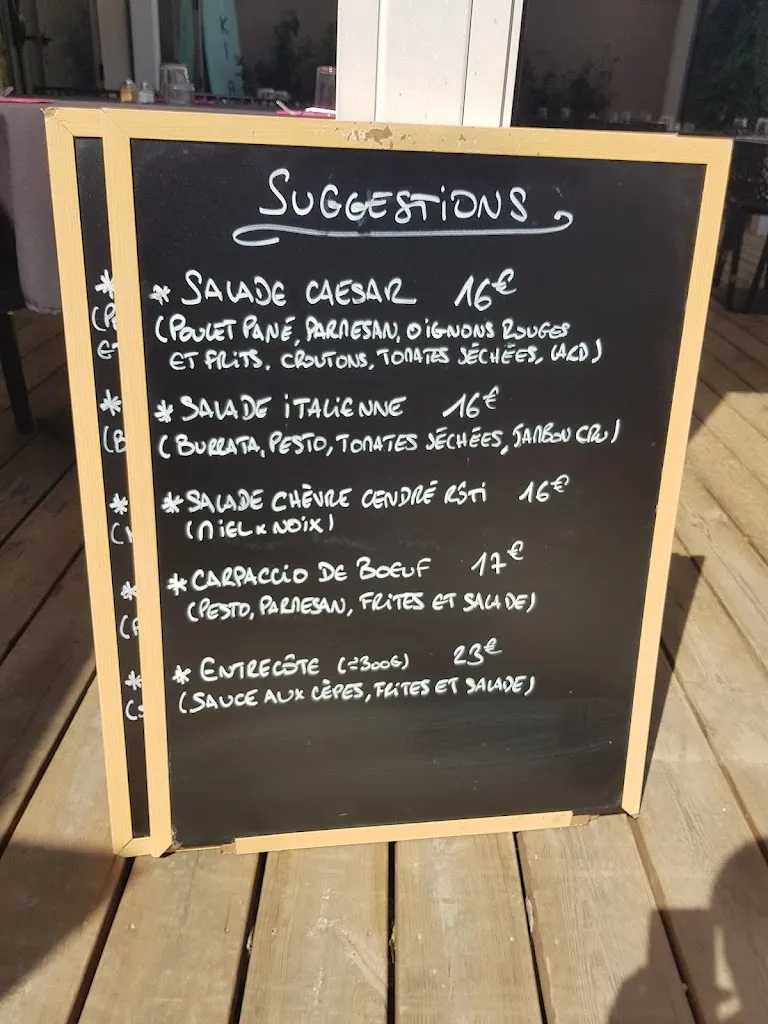 SUGGESTIONS
* SALADE CAESAR 16€
(POULET PANÉ, PARMESAN, OIGNONS ROUGES
ET FRITS, CROUTONS, TOMATES SÉCHÉES, LARD)
* SALADE ITALIENNE 16€
(BURRATA, PESTO, TOMATES SÉCHÉES, JAMBON CRU)
* SALADE CHÈVRE CENDRÉ RÔTI 16€
(MIEL x NOIX)
* CARPACCIO DE BOEUF 17€
(PESTO, PARMESAN, FRITES ET SALADE)
* ENTRECÔTE (≃300G) 23€
(SAUCE AUX CÈPES, FRITES ET SALADE)